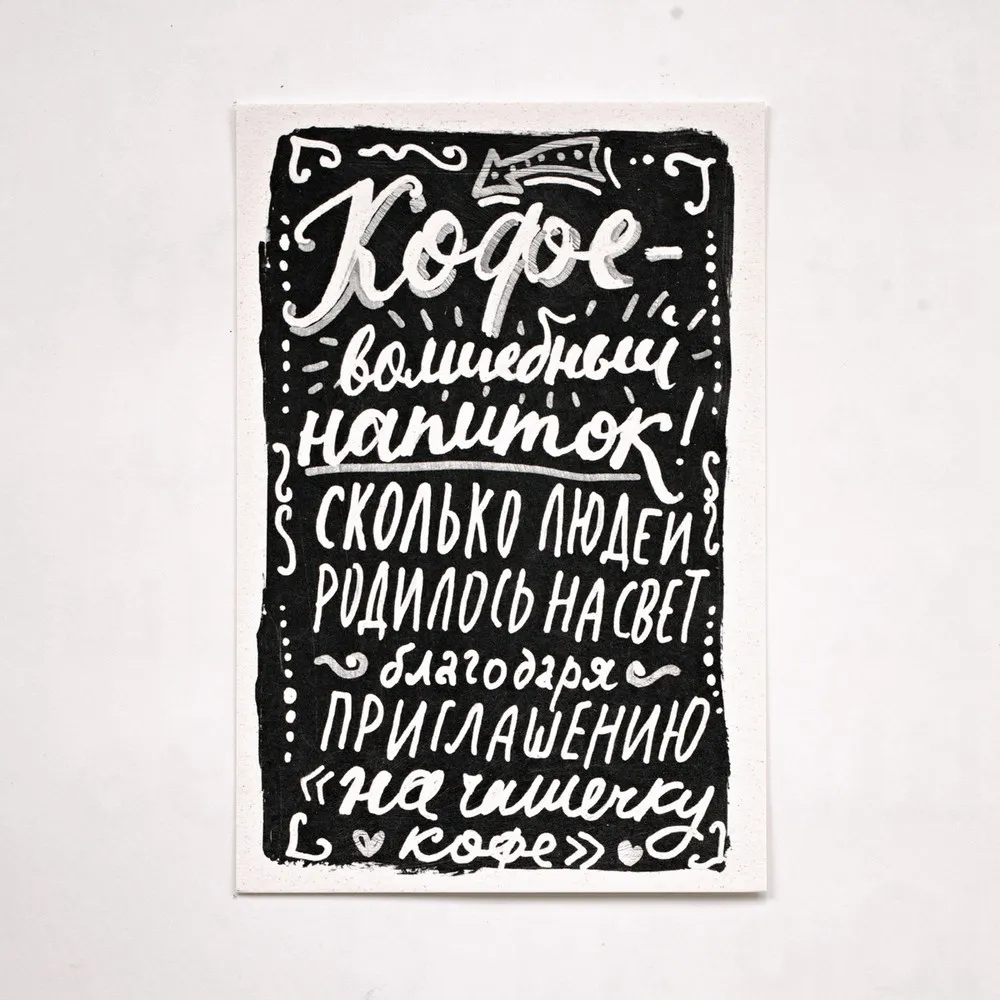 Кофе-
волшебный
напиток!
СКОЛЬКО ЛЮДЕЙ
РОДИЛОСЬ НА СВЕТ
благодаря
ПРИГЛАШЕНИЮ
«на чашечку
кофе»